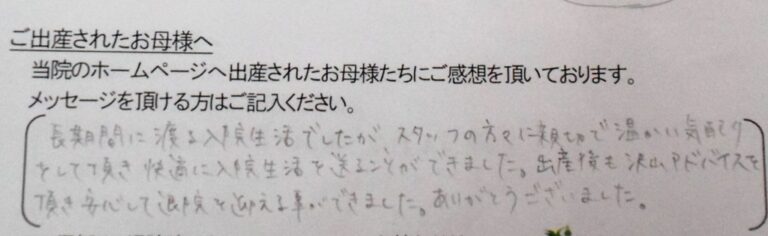 ご出産されたお母様へ
当院のホームページへ出産されたお母様たちにご感想を頂いております。
メッセージを頂ける方はご記入ください。
長期間に渡る入院生活でしたが、スタッフの方々に親切で温かい気配り
をして頂き快適に入院生活を送ることができました。出産後も沢山アドバイスを
頂き安心して退院を迎える事ができました。ありがとうございました。